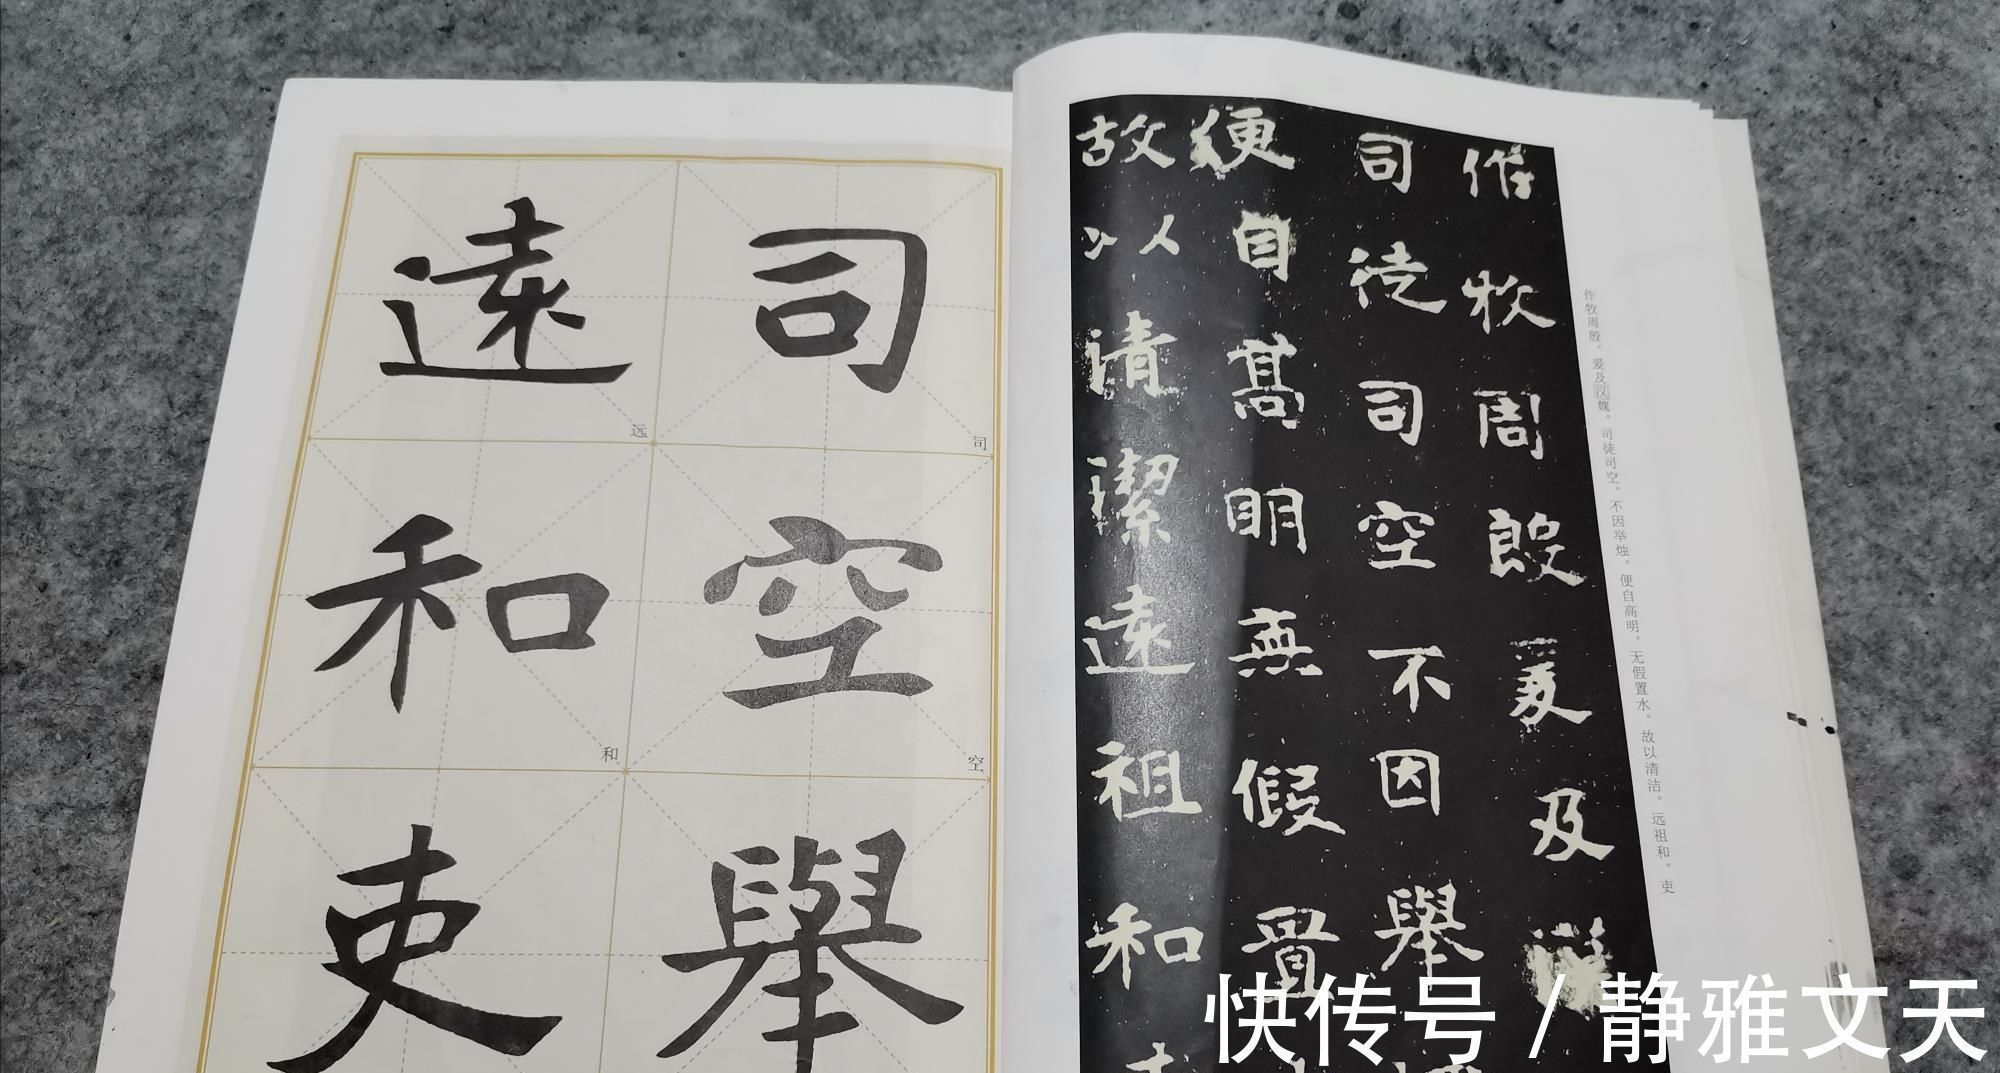 司
空
舉
遠
和
吏
司
空
远
和
作牧周殷爰及
司徒司空不因舉
便自髙明無假置
故以清潔遠祖和
作牧周殷。爰及汉魏。司徒司空。不因举烛。便自高明。无假置水。故以清洁。远祖和。吏
快传号 / 静雅文天